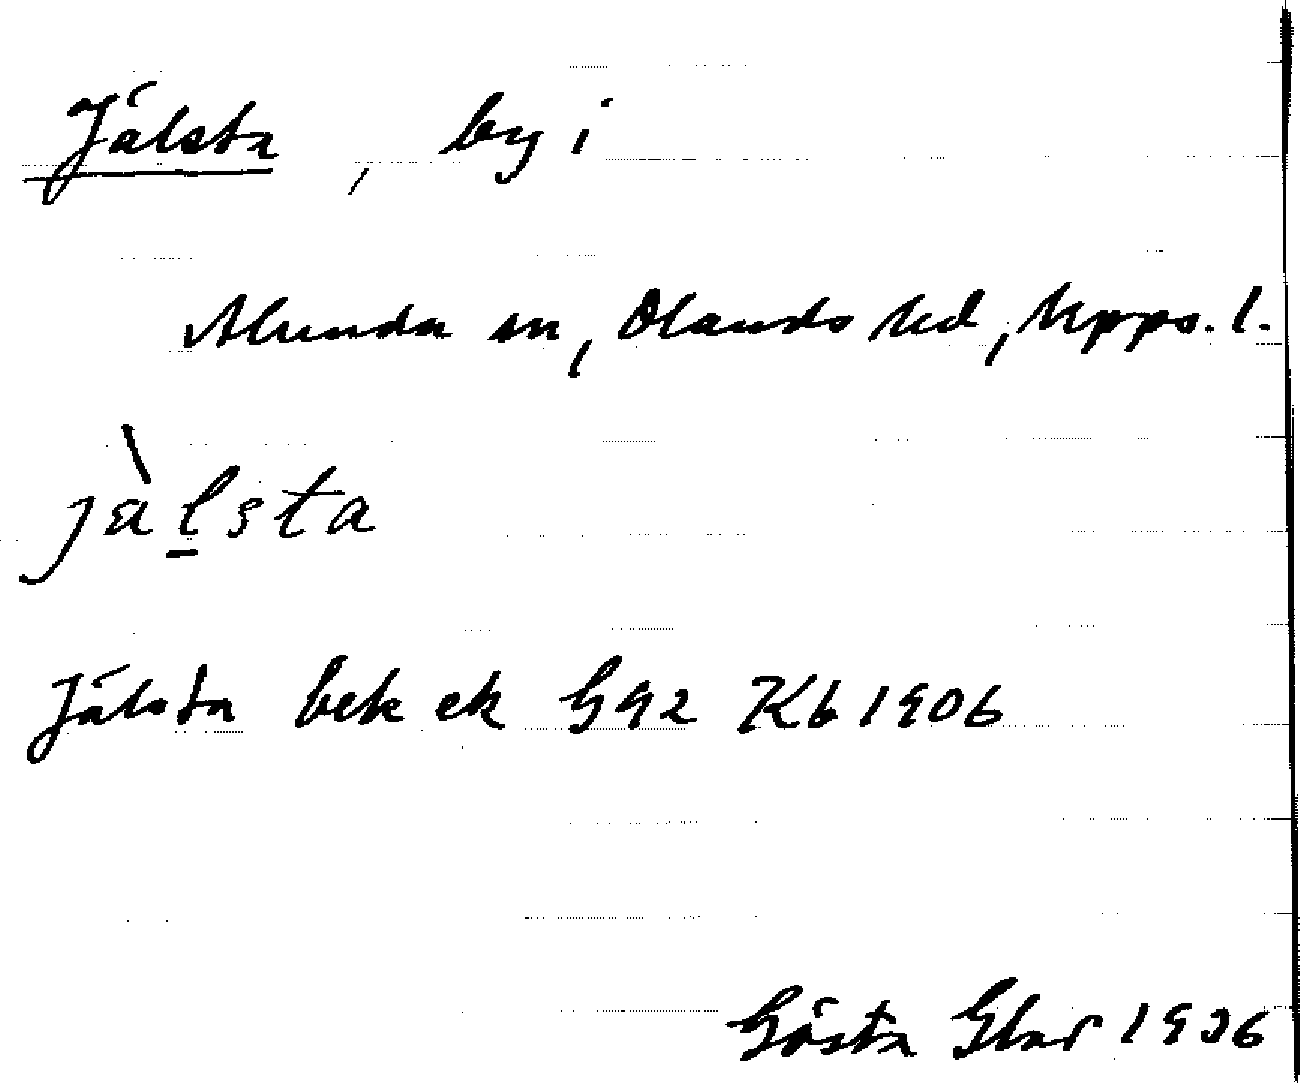 Jälsta, by i
Alunda sn, Olands hd, Upps. l.
jàlsta
Jälsta bek ek G92 Kb 1906
Gösta Glar 1936